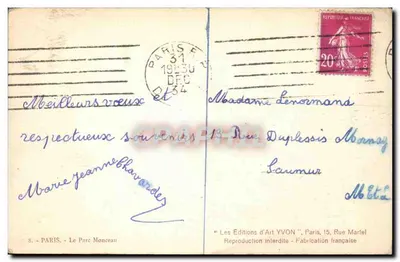 PARIS
31
1930
DEC
34
REPUBLIQUE FRANÇAISE
20
Meilleurs vœux et
respectueux souvenirs
Marie Jeanne Chavardez
Madame Lenormand
12 Rue Duplessis Mornay
Saumur
M et L
8. - PARIS. - Le Parc Monceau
"Les Editions d'Art YVON", Paris, 15, Rue Martel
Reproduction interdite - Fabrication française